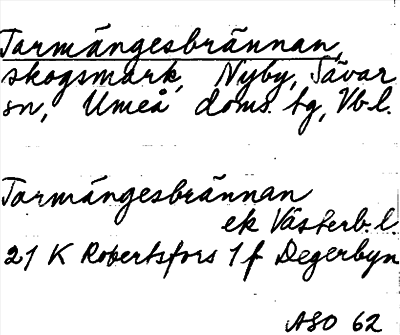 Tarmängesbrännan,
skogsmark, Nyby, Sävar
sn, Umeå doms. tg, Vb.l.
Tarmängesbrännan
ek Västerb.l.
21 K Robertsfors 1 f Degerbyn
ASO 62